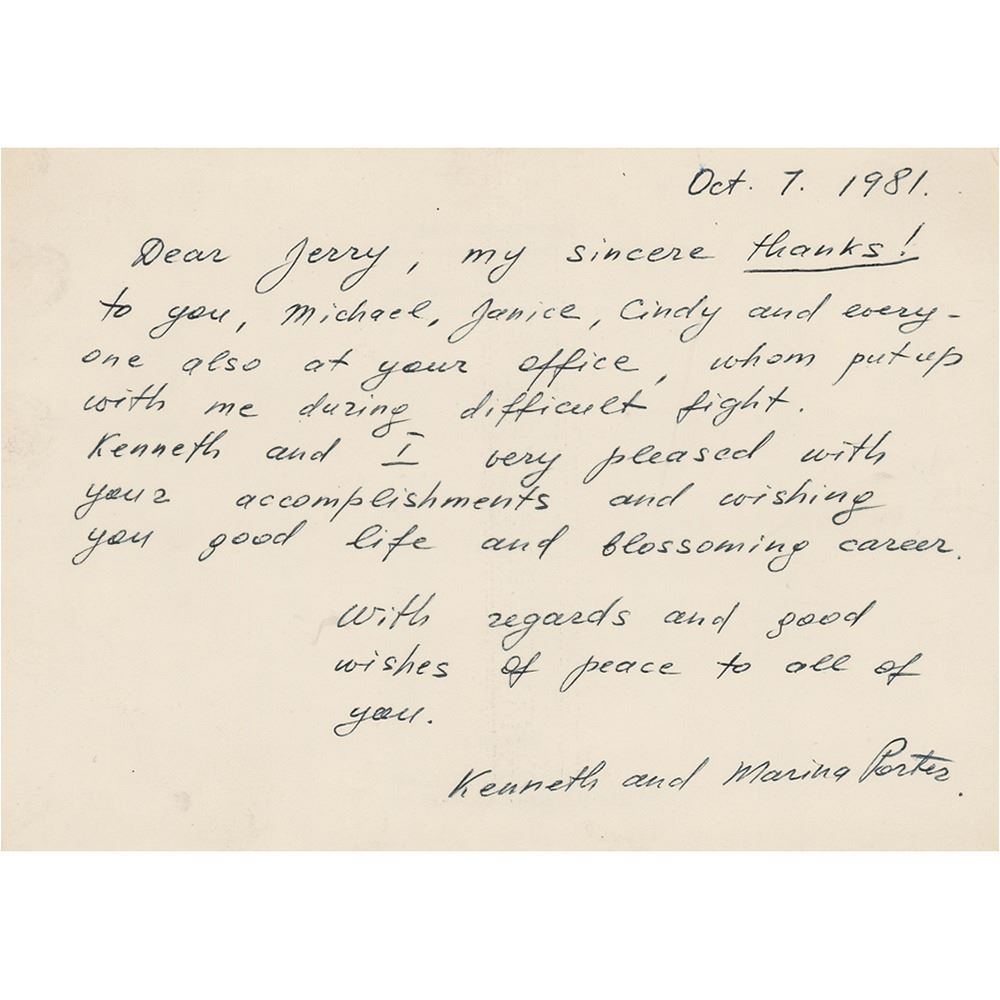 Oct. 7. 1981.
Dear Jerry, my sincere thanks!
to you, Michael, Janice, Cindy and every-
one also at your office, whom put up
with me during difficult fight.
Kenneth and I very pleased with
your accomplishments and wishing
you good life and blossoming career.
With regards and good
wishes of peace to all of
you.
Kenneth and Marina Porter.